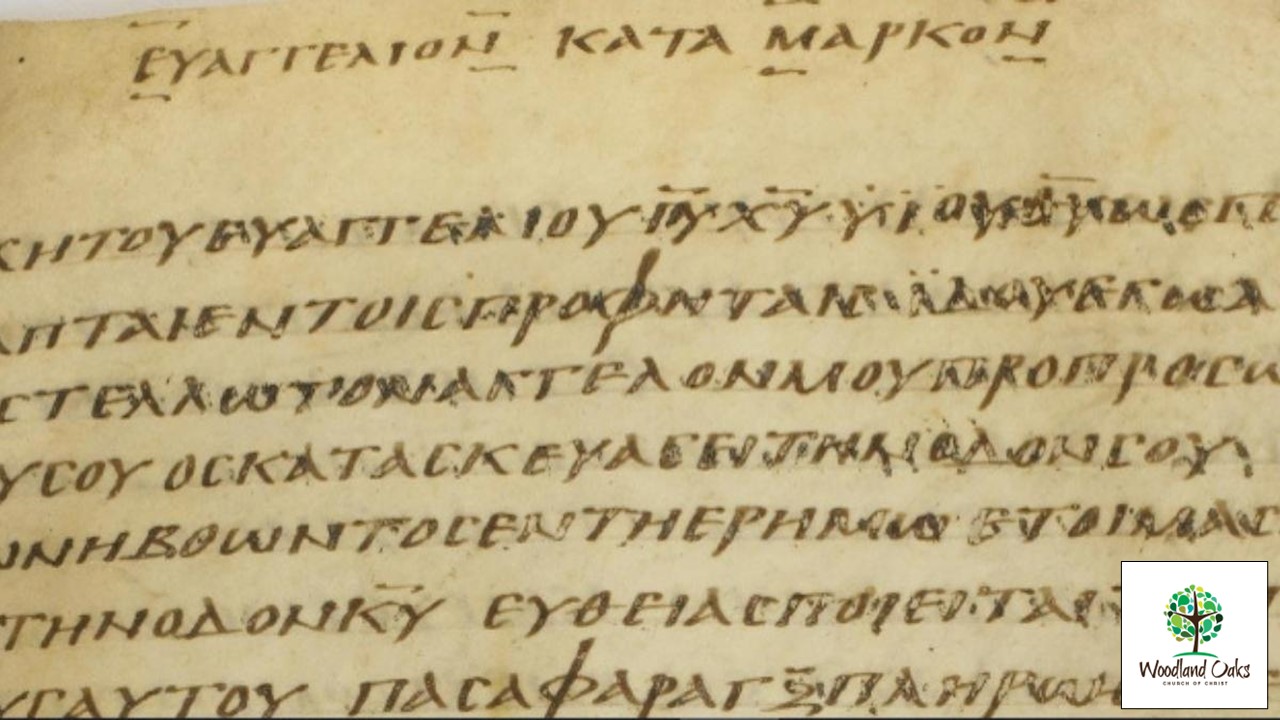 ΕΥΑΓΓΕΛΙΟΝ ΚΑΤΑ ΜΑΡΚΟΝ
ΧΗΤΟΥΕΥΑΓΓΕΛΙΟΥ Ι̅Υ̅ Χ̅Υ̅ ΥΪΟΥ
ΑΠΤΑΙΕΝΤΟΙϹΠΡΟΦΗΤΑΙϹ ΪΔΟΥΕΓΩΑ
ϹΤΕΛΛΩΤΟΝΑΓΓΕΛΟΝΜΟΥΠΡΟΠΡΟϹΩ
ΥϹΟΥ ΟϹΚΑΤΑϹΚΕΥΑϹΕΙΤΗΝΟΔΟΝϹΟΥ
ΩΝΗΒΟΩΝΤΟϹΕΝΤΗΕΡΗΜΩ ΕΤΟΙΜΑϹ
ΤΗΝΟΔΟΝΚ̅Υ̅ ΕΥΘΕΙΑϹΠΟΙΕΙΤΑΙ
ΥϹΑΥΤΟΥ ΠΑϹΑΦΑΡΑΓΞΠΛΗΡΩ
Woodland Oaks
CHURCH OF CHRIST